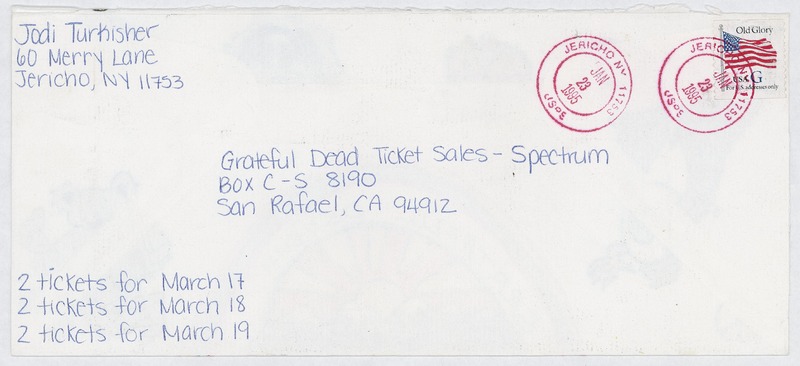 Jodi Turkisher
60 Merry Lane
Jericho, NY 11753
JERICHO NY 11753
JAN
23
1995
USPS
JERICHO NY 11753
JAN
23
1995
USPS
Old Glory
USA G
For U.S. addresses only
Grateful Dead Ticket Sales - Spectrum
Box C-S 8190
San Rafael, CA 94912
2 tickets for March 17
2 tickets for March 18
2 tickets for March 19